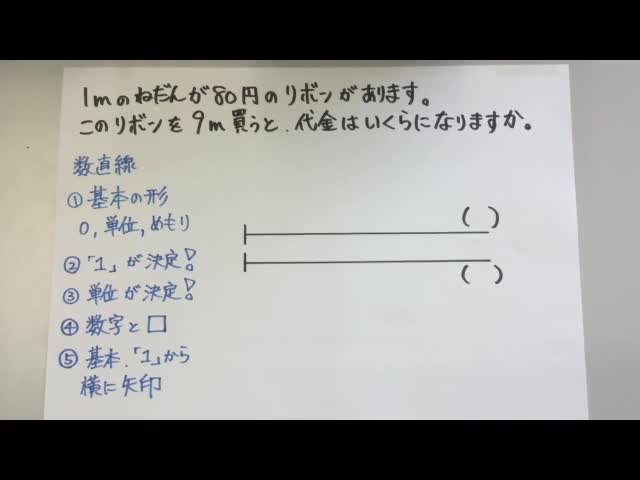 1mのねだんが80円のリボンがあります。
このリボンを9m買うと、代金はいくらになりますか。
数直線
①基本の形
0,単位,めもり
②「1」が決定!
③単位が決定!
④数字と□
⑤基本、「1」から
横に矢印
( )
( )